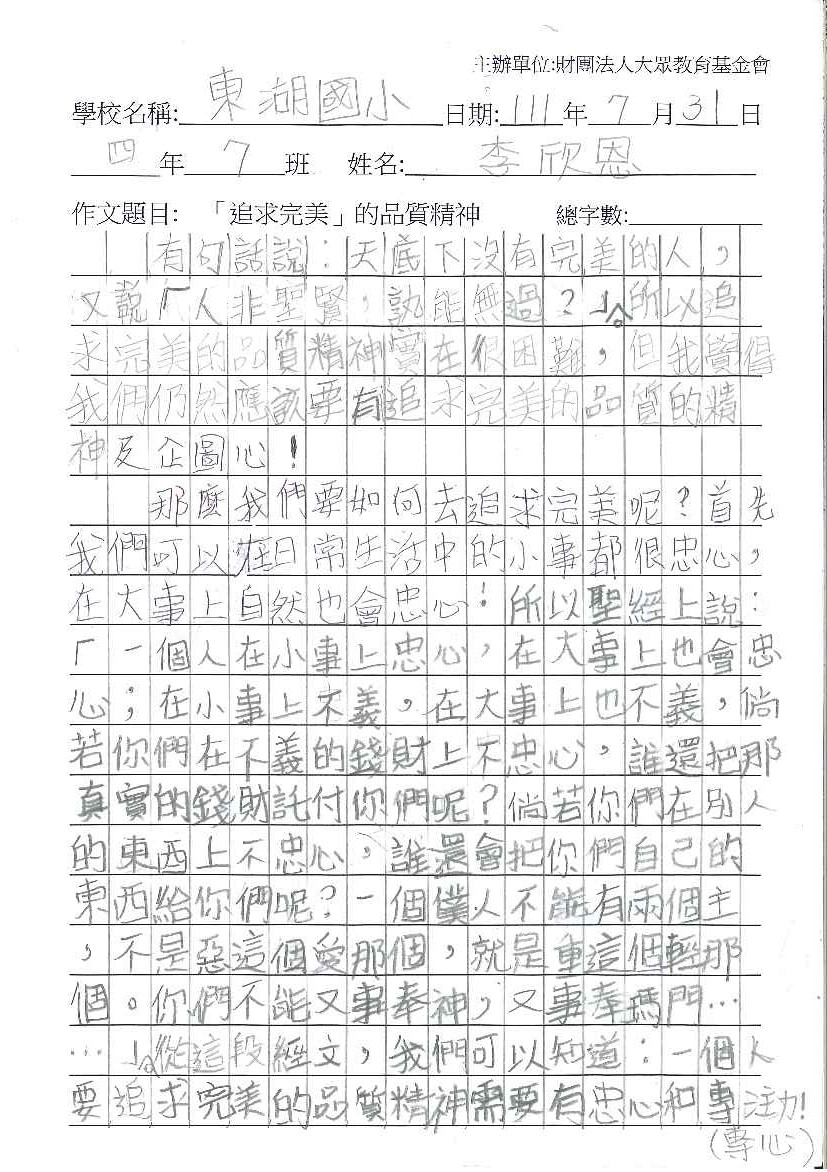 主辦單位:財團法人大眾教育基金會
學校名稱:東湖國小日期:111年7月31日
四年7班 姓名:李欣恩
作文題目: 「追求完美」的品質精神 總字數:
有句話說:天底下沒有完美的人,
又說「人非聖賢,孰能無過?」。所以追
求完美的品質精神實在很困難,但我覺得
我們仍然應該要有追求完美的品質的精
神及企圖心!
那麼我們要如何去追求完美呢?首先
我們可以在日常生活中的小事都很忠心,
在大事上自然也會忠心!所以聖經上說:
「一個人在小事上忠心,在大事上也會忠
心;在小事上不義,在大事上也不義,倘
若你們在不義的錢財上不忠心,誰還把那
真實的錢財託付你們呢?倘若你們在別人
的東西上不忠心,誰還會把你們自己的
東西給你們呢?一個僕人不能有兩個主
,不是惡這個愛那個,就是重這個輕那
個。你們不能又事奉神,又事奉瑪門…
…」。從這段經文,我們可以知道:一個人
要追求完美的品質精神需要有忠心和專注力!
(專心)